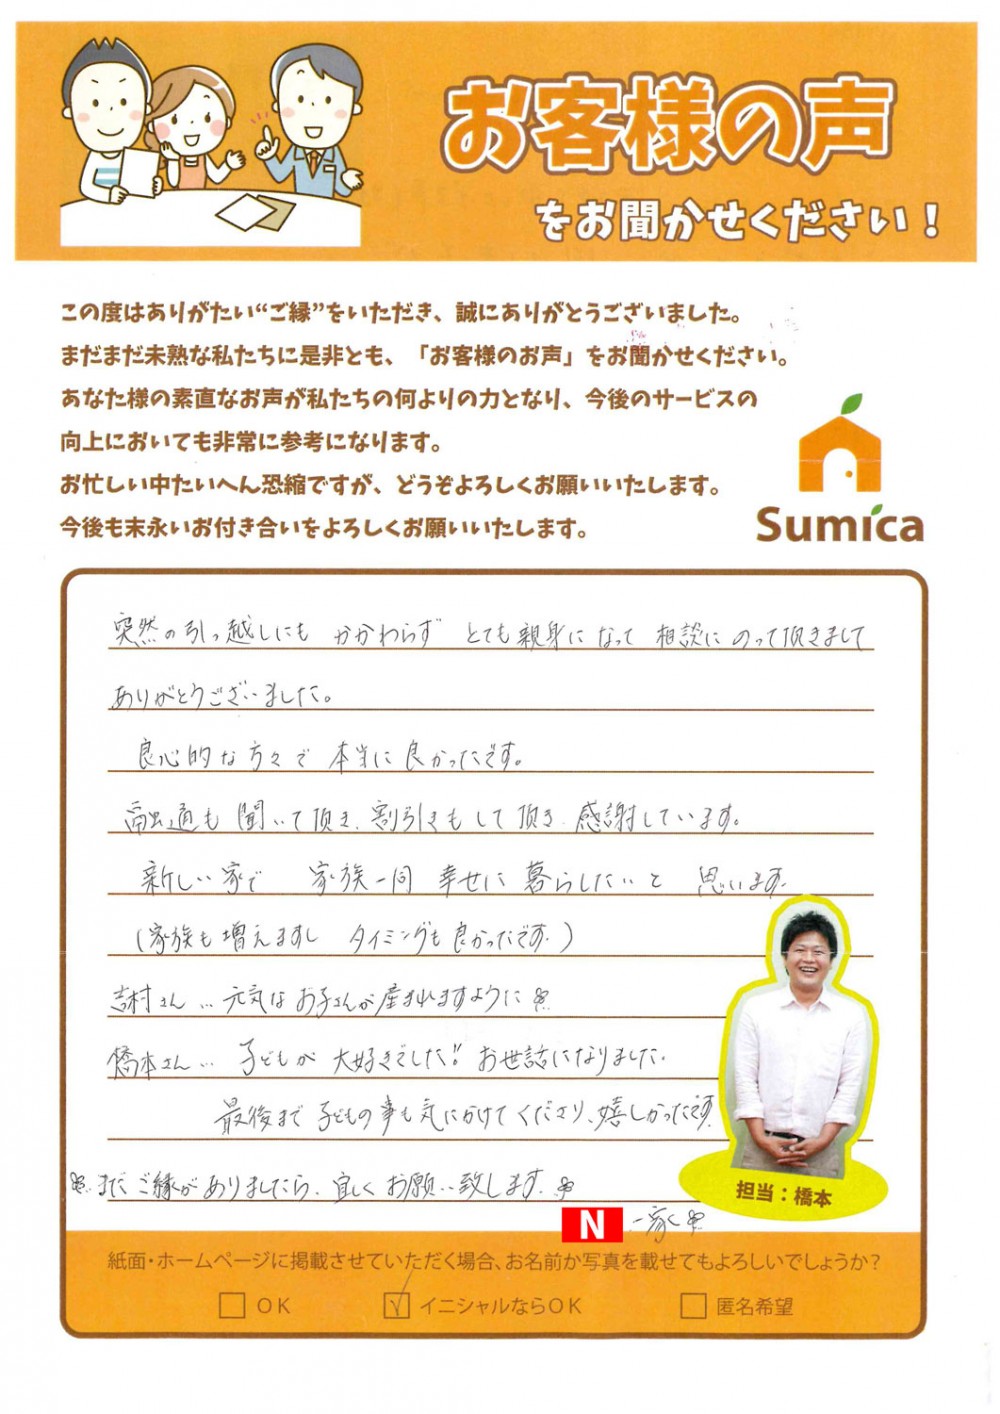 お客様の声
をお聞かせください！
この度はありがたい“ご縁”をいただき、誠にありがとうございました。
まだまだ未熟な私たちに是非とも、「お客様のお声」をお聞かせください。
あなた様の素直なお声が私たちの何よりの力となり、今後のサービスの
向上においても非常に参考になります。
お忙しい中たいへん恐縮ですが、どうぞよろしくお願いいたします。
今後も末永いお付き合いをよろしくお願いいたします。
Sumica
突然の引っ越しにも かかわらず とても親身になって 相談に のって頂きまして
ありがとうございました。
良心的な方々で 本当に良かったです。
融通も 聞いて頂き、割引きもして頂き、感謝しています。
新しい家で 家族一同 幸せに 暮らしたいと 思います。
(家族も増えますし タイミングも良かったです。)
吉村さん… 元気なお子さんが産まれますように
橋本さん… 子どもが 大好きでした!! お世話になりました。
最後まで 子どもの事も気にかけてくださり、嬉しかったです。
まだご縁がありましたら、宜しくお願い致します。
N 一家
担当：橋本
紙面・ホームページに掲載させていただく場合、お名前か写真を載せてもよろしいでしょうか？
OK イニシャルならOK 匿名希望